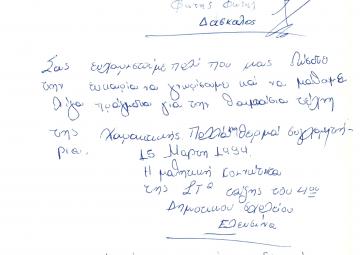 Φώτης Φώτης
Δάσκαλος
Σας ευχαριστούμε πολύ που μας δώσατε
την ευκαιρία να γνωρίσουμε και να μάθουμε
λίγα πράγματα για την θαυμάσια τέχνη
της Χαρακτικής Πολλά θερμά συγχαρητή-
ρια.
15 Μαρτη 1994
Η μαθητική κοινότητα
της ΣΤ' τάξης του 4ου
Δημοτικού σχολείου
Ελευσίνα